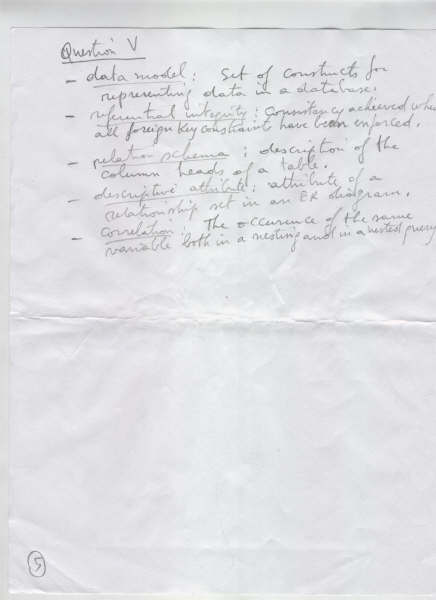 Question V
- data model : Set of constructs for
representing data in a database.
- referential integrity : Consistency achieved when
all foreign key constraints have been enforced.
- relation schema : description of the
column heads of a table.
- descriptive attribute : attribute of a
relationship set in an ER diagram.
- correlation : The occurence of the same
variable both in a nesting and in a nested query
5